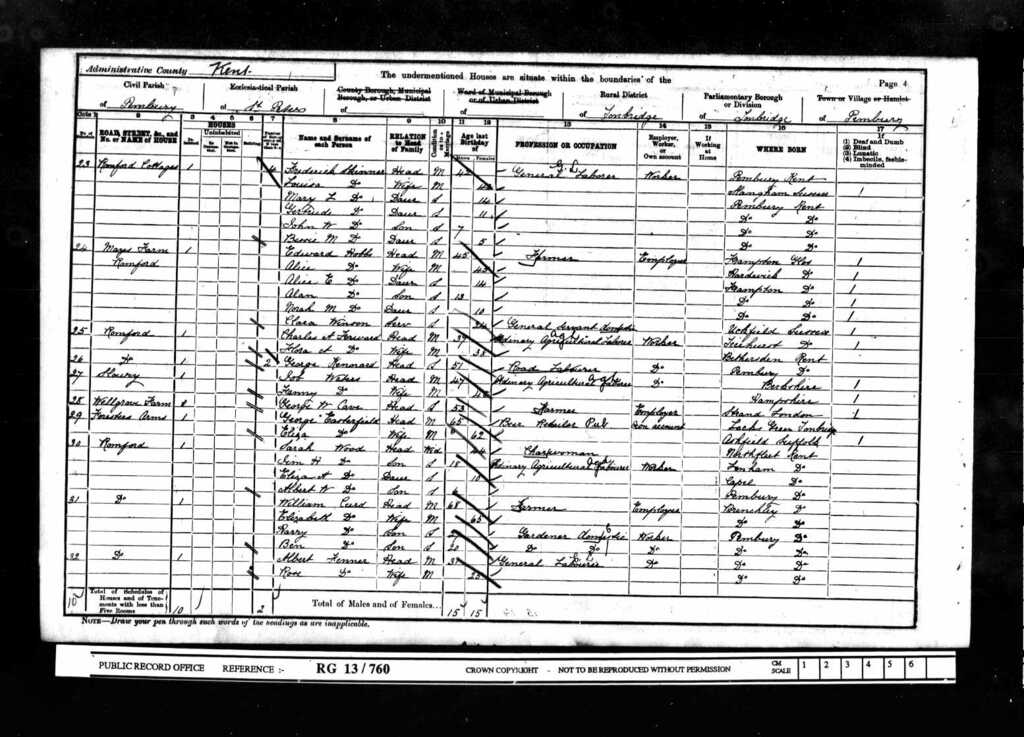 Administrative County Kent.
The undermentioned Houses are situate within the boundaries of the
Page 4
Civil Parish
of Pembury
Ecclesiastical Parish
of St Peters
County Borough, Municipal Borough, or Urban District
of
Ward of Municipal Borough or of Urban District
of
Rural District
of Tonbridge
Parliamentary Borough or Division
of Tonbridge
Town or Village or Hamlet
of Pembury
ROAD, STREET, &c., and No. or NAME of HOUSE
HOUSES
Uninhabited
Building
Name and Surname of each Person
RELATION to Head of Family
Age last Birthday of
Males Females
PROFESSION OR OCCUPATION
Employer, Worker, or Own account
If Working at Home
WHERE BORN
If
(1) Deaf and Dumb
(2) Blind
(3) Lunatic
(4) Imbecile, feeble-minded
23 Romford Cottages 1 4 Frederick Skinner Head M 42 General Labourer Worker Pembury Kent
Louisa Do Wife M Sussex 1
Mary L Do Daur S 14 Pembury Kent
Gertrude Do Daur S 11 Do Do
John W Do Son S 7 Do Do
Bessie M Do Daur S 5 Do Do
24 Mazes Farm 1 Edward Hobbs Head M 45 Farmer Employer Frampton Glos 1
Romford Alice Do Wife M 43 Hardwick Do 1
Alice E Do Daur S 14 Frampton Do 1
Alan Do Son S 13 Do Do 1
Norah M Do Daur S 10 Do Do 1
Clara Winson Serv S 24 General Servant Domestic Uckfield Sussex 1
25 Romford 1 Charles A Head M 39 Ordinary Agricultural Labourer Worker Ticehurst Do 1
Flora A Do Wife M 38 Bethersden Kent
26 Do 1 2 George Kennard Head S 51 Road Labourer Do Pembury Do
27 1 Job Waters Head M 47 Ordinary Agricultural Labourer Do Berkshire 1
Fanny Do Wife M 48 Hampshire 1
28 Wellgrove Farm George W Cave Head S 53 Farmer Employer Strand London 1
29 Foresters Arms 1 George Head M 65 Beer Retailer Pub Own account Lacks Green Tonbridge
Eliza Do Wife M 62 Ashfield Suffolk 1
30 Romford 1 Sarah Wood Head Wd 44 Charwoman Northfleet Kent
Jim H Do Son S 18 Ordinary Agricultural Labourer Worker Do
Eliza A Do Daur S 10 Capel Do
Albert W Do Son S 6 Pembury Do
31 Do 1 William Head M 68 Farmer Employer Brenchley Do
Elizabeth Do Wife M 65 Do Do
Harry Do Son S Gardener Domestic Worker Pembury Do
Ben Do Son S 20 Do Do Do Do Do
32 Do 1 Albert Fenner Head M 31 General Labourer Do Do Do
Rose Do Wife M Do Do
10 Total of Schedules of Houses and of Tenements with less than Five Rooms 10 2 Total of Males and of Females... 15 15
NOTE—Draw your pen through such words of the headings as are inapplicable.
PUBLIC RECORD OFFICE REFERENCE :- RG 13/760 CROWN COPYRIGHT - NOT TO BE REPRODUCED WITHOUT PERMISSION CM SCALE 1 2 3 4 5 6